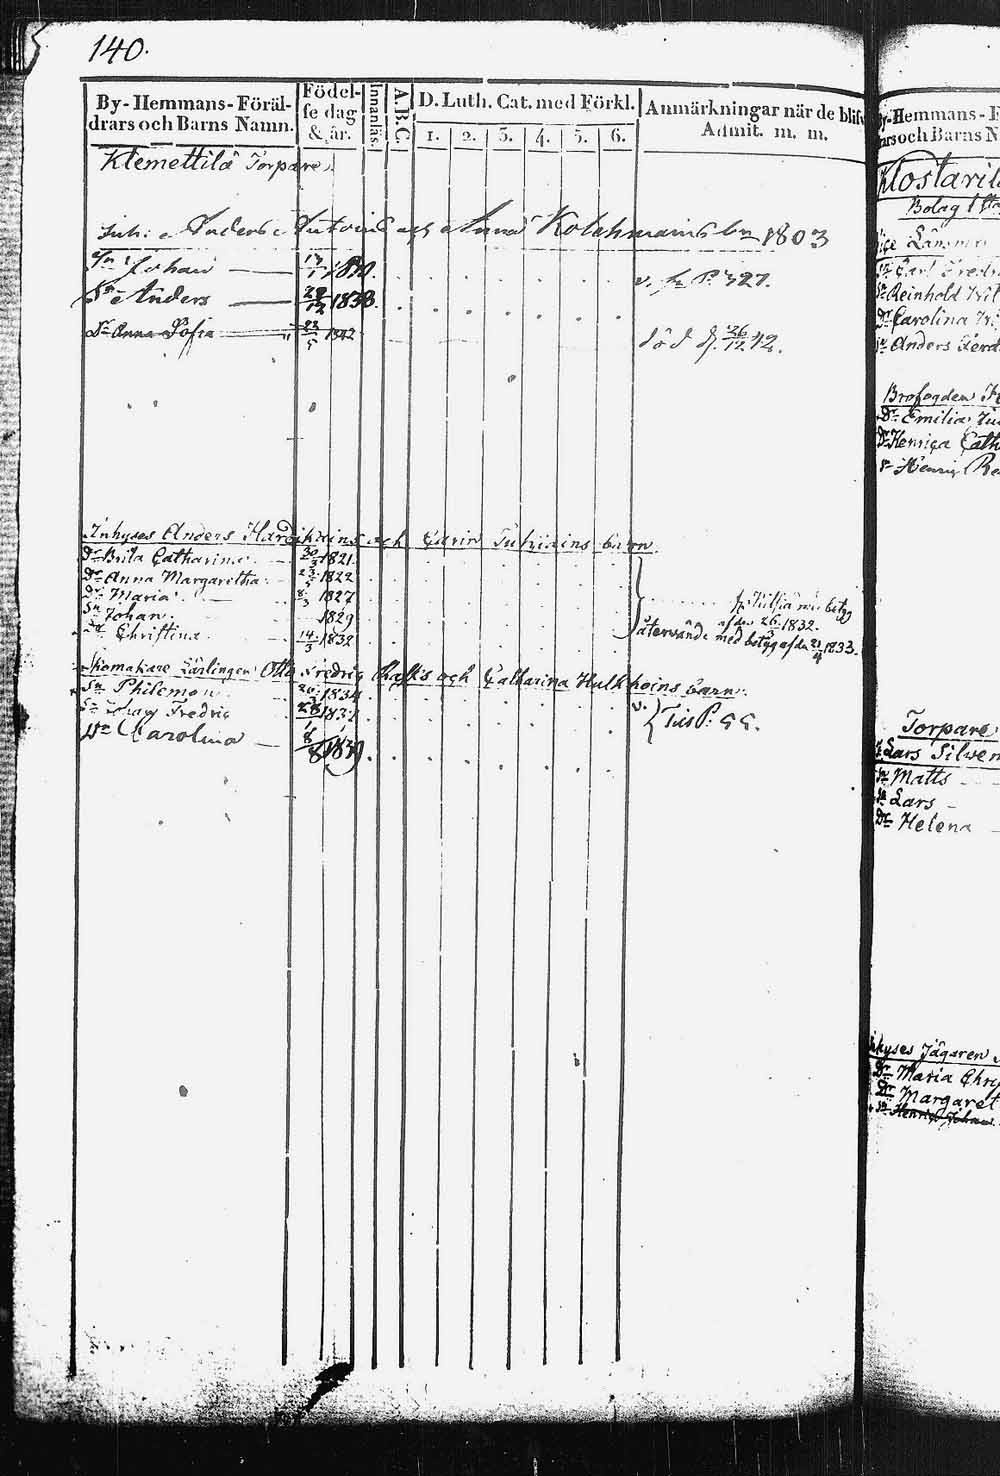 140.
By-Hemmans-Föräl-
drars och Barns Namn.
Födel-
se dag
& år.
Innanläs.
A.B.C.
D. Luth. Cat. med Förkl.
1. 2. 3. 4. 5. 6.
Anmärkningar när de blifv
Admit. m. m.
Klemettilä Torpare.
Inh: Anders och Anna Kolehmains bn 1803
Sn Johan 13/1 18
Sn Anders 29/12 1838. v. fr P. 327.
Dr Anna Sofia 22/5 1842 död d. 26/12 42.
Inhyses Anders Hardikains och Carin barn.
Dr Brita Catharina 30/3 1821.
Dr Anna Margaretha 23/5 1822
Dr Maria 8/3 1827
Sn Johan. 1829
Dr Christina 14/3 1832
betyg
af den 26/3 1832.
återvände med betyg af den 21/4 1833.
Skomakare Lärlingen Otto Fredric och Catharina Hulkkoins barn.
Sn Philemon 1834
Sn Johan Fredric 28/1 1837
Dr Carolina 8/8 1839
v. P. 55.
By-Hemmans-F
rars och Barns N
Klostaril
Bolag
Länsman
Sn Carl Fredri
Sn Reinhold Wil
Dr Carolina
Sn Anders Ferd
Brofogden
Dr Emilia
Dr Henrica Cath
Sn Henric
Torpare
Lars Silven
Sn Matts
Sn Lars
Dr Helena
Inhyses Jägaren
Dr Maria Chri
Dr Margaret
Sn Henric Johan